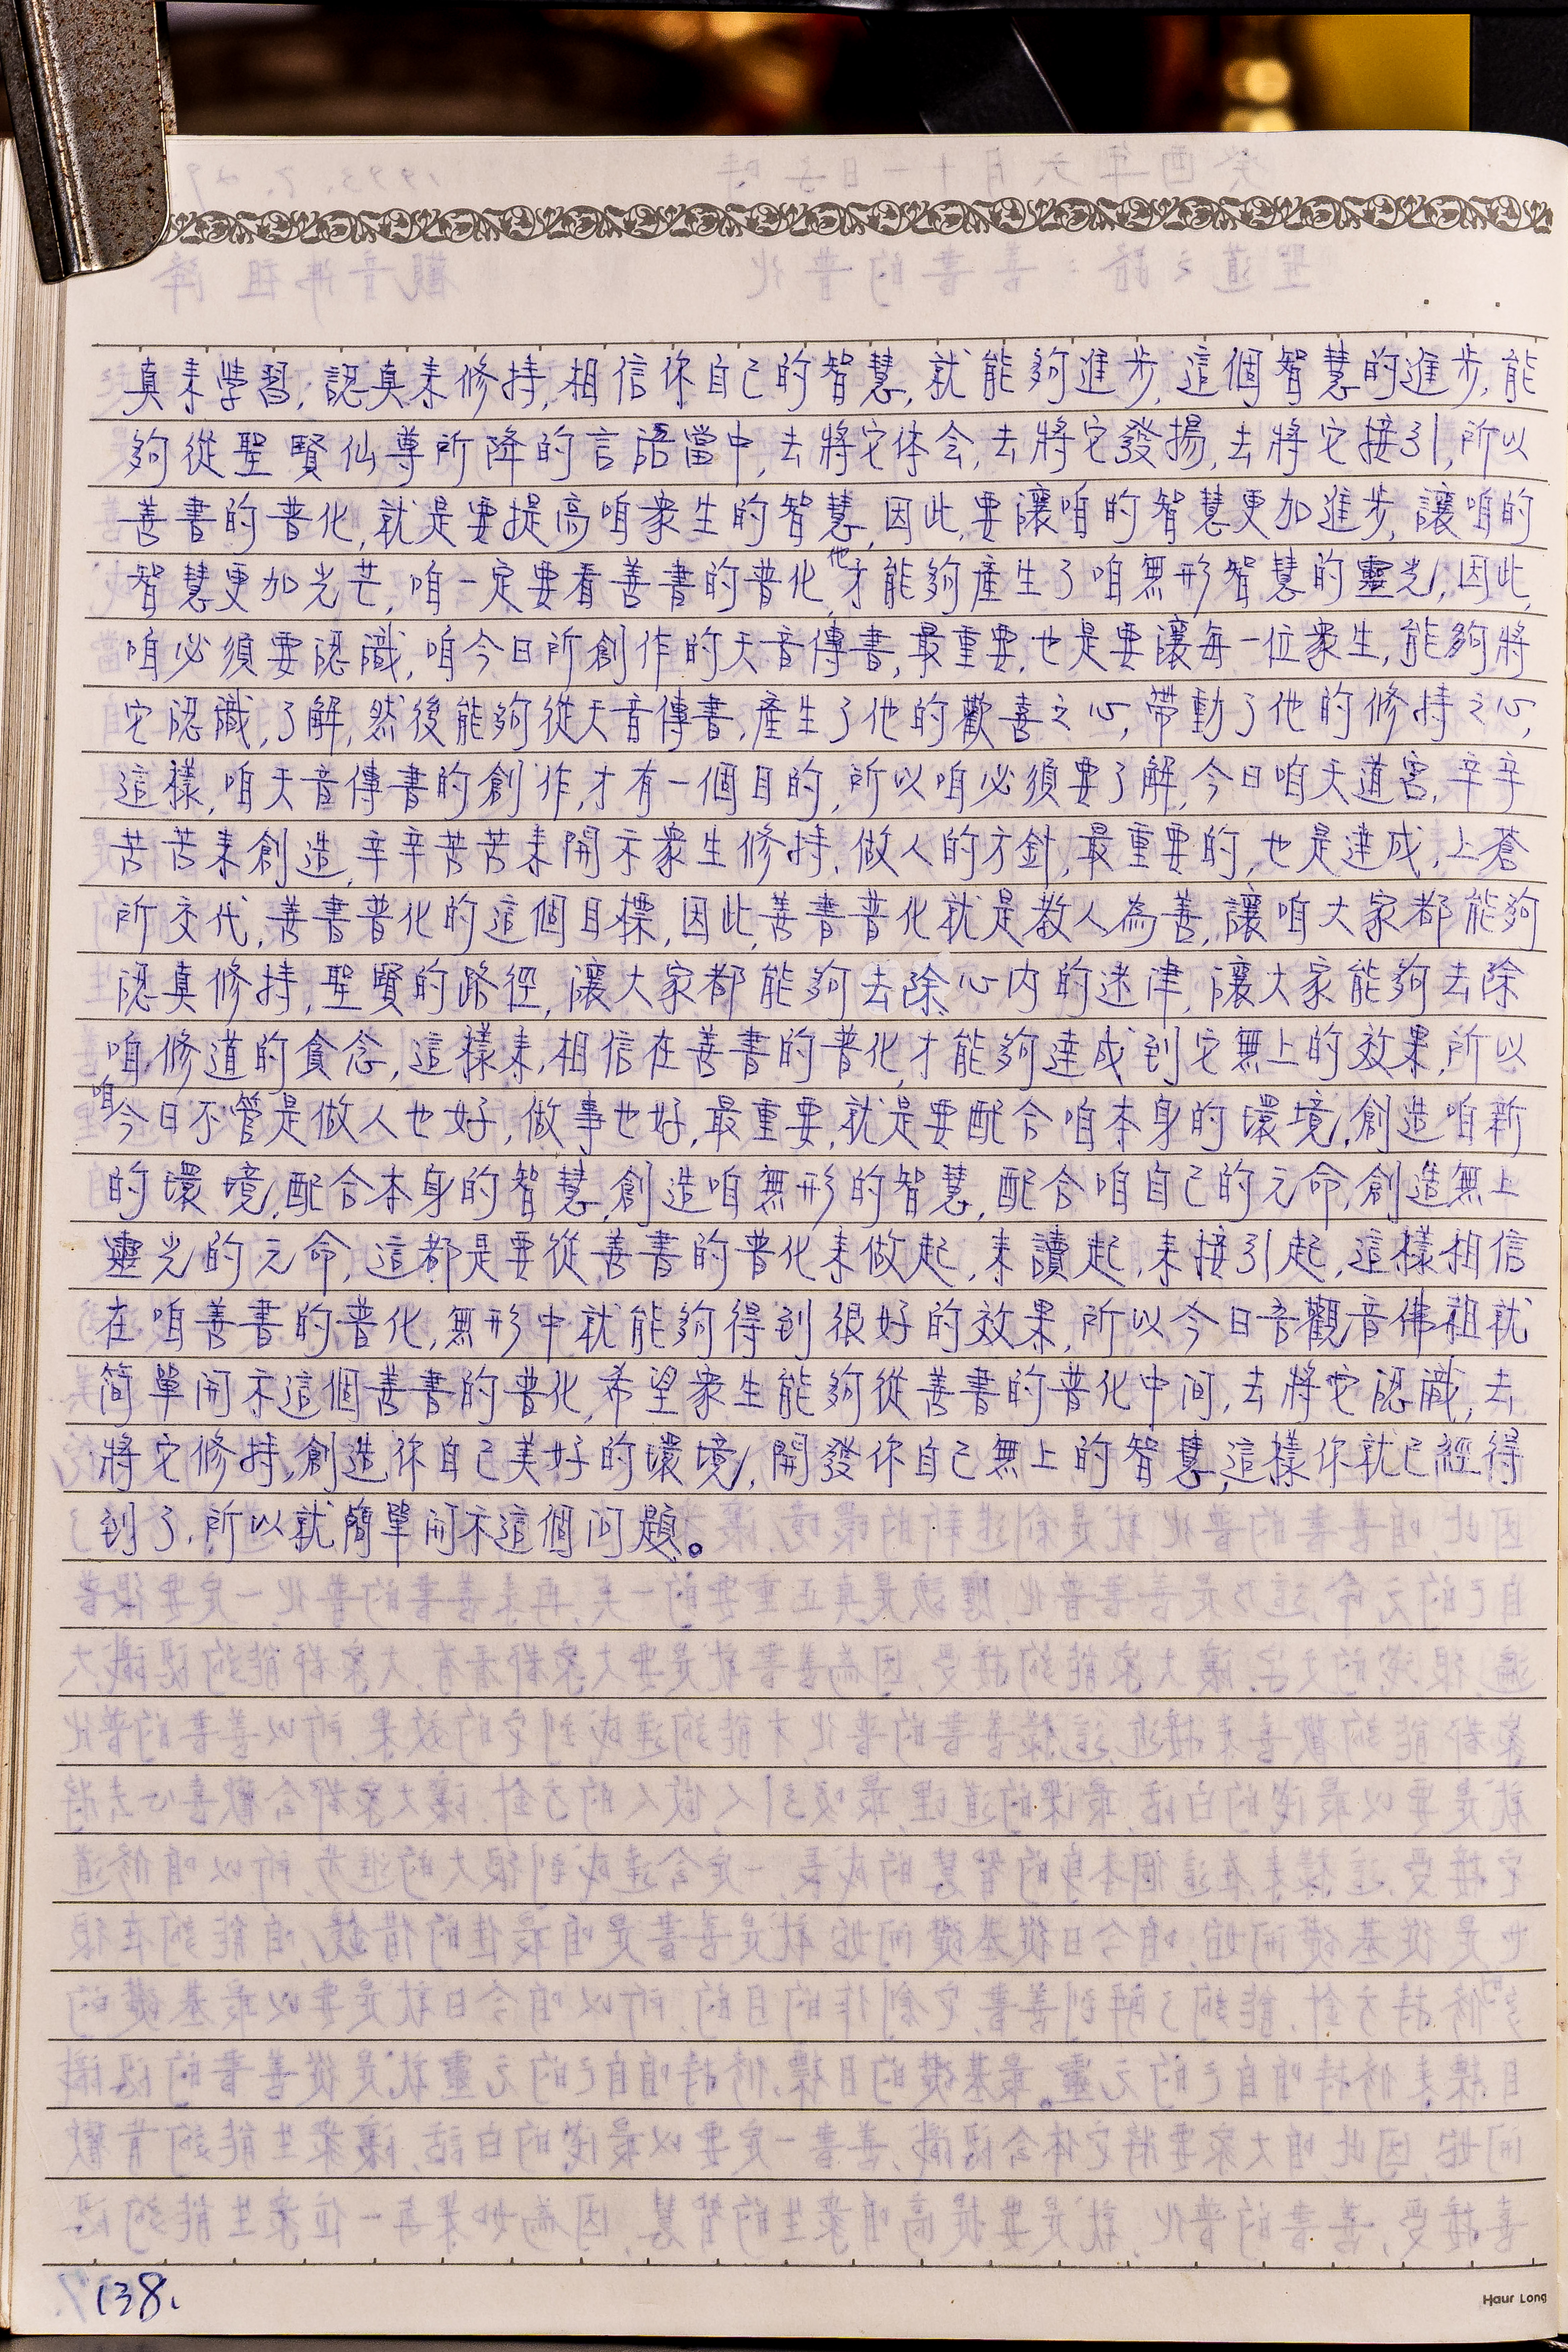 真來學習,認真來修持,相信你自己的智慧,就能夠進步,這個智慧的進步,能
夠從聖賢仙尊所降的言語當中,去將它体会,去將它發揚,去將它接引,所以
善書的普化,就是要提高咱衆生的智慧,因此,要讓咱的智慧更加進步,讓咱的
智慧更加光芒,咱一定要看善書的普化,他才能夠產生了咱無形智慧的靈光,因此,
咱必須要認識,咱今日所創作的天音傳書,最重要,也是要讓每一位衆生,能夠將
它認識,了解,然後能夠從天音傳書,產生了他的歡喜之心,帶動了他的修持之心,
這樣,咱天音傳書的創作,才有一個目的,所以咱必須要了解,今日咱天道宮,辛辛
苦苦來創造,辛辛苦苦來開示衆生修持,做人的方針,最重要的,也是達成,上蒼
所交代,善書普化的這個目標,因此,善書普化就是教人為善,讓咱大家都能夠
認真修持,聖賢的路徑,讓大家都能夠去除心内的迷津,讓大家能夠去除
咱修道的貪念,這樣來,相信在善書的普化,才能夠達成到它無上的效果,所以
咱今日不管是做人也好,做事也好,最重要,就是要配合咱本身的環境,創造咱新
的環境,配合本身的智慧,創造咱無形的智慧,配合咱自己的元命,創造無上
靈光的元命,這都是要從善書的普化來做起,來讀起,來接引起,這樣相信
在咱善書的普化,無形中就能夠得到很好的效果,所以今日吾觀音佛祖就
简單開示這個善書的普化,希望衆生能夠從善書的普化中间,去將它認識,去
將它修持,創造你自己美好的環境,開發你自己無上的智慧,這樣你就已經得
到了,所以就簡單開示這個问題。
138.
Haur Long